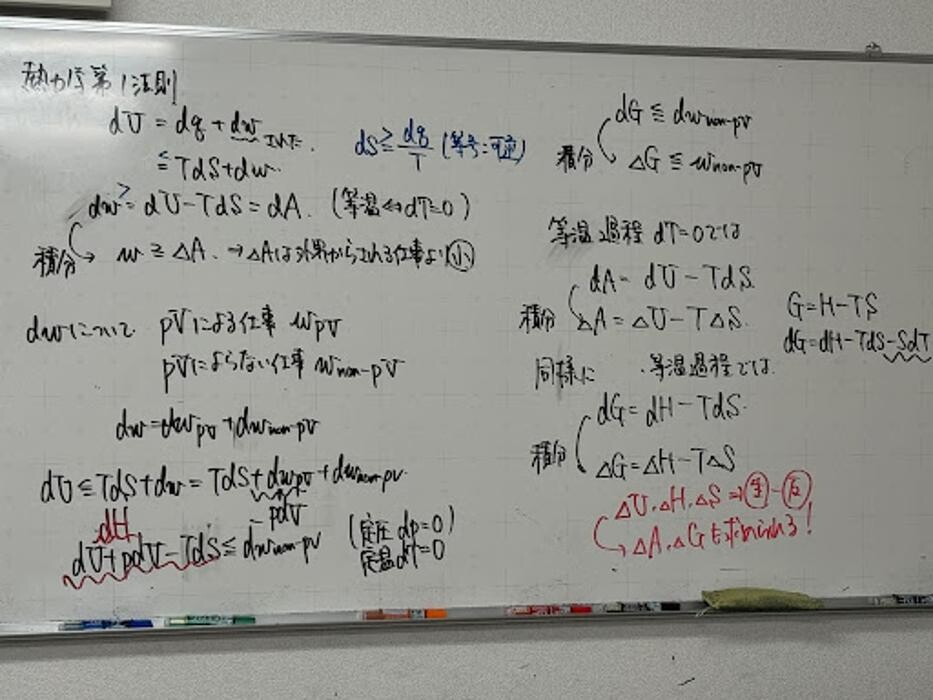 熱力学第1法則
dU = dq + dw
dS ≧ dq/T (等号:可逆)
≦ TdS + dw
dw ≧ dU - TdS = dA. (等温⇔dT=0)
積分→ w ≧ ΔA. → ΔAは外界からされる仕事より小
dwについて pVによる仕事 wpV
pVによらない仕事 wnon-pV
dw = dwpV + dwnon-pV
dU ≦ TdS + dw = TdS + dwpV + dwnon-pV
-pdV
dH
dU + pdV - TdS ≦ dwnon-pV (定圧 dp=0 定温 dT=0)
dG ≦ dwnon-pV
積分 ΔG ≦ wnon-pV
等温過程 dT=0では
dA = dU - TdS
積分 ΔA = ΔU - TΔS.
G = H - TS
dG = dH - TdS - SdT
同様に 等温過程では
dG = dH - TdS
積分 ΔG = ΔH - TΔS
ΔU, ΔH, ΔS ⇒ 生 - 反
→ ΔA, ΔGも求められる!